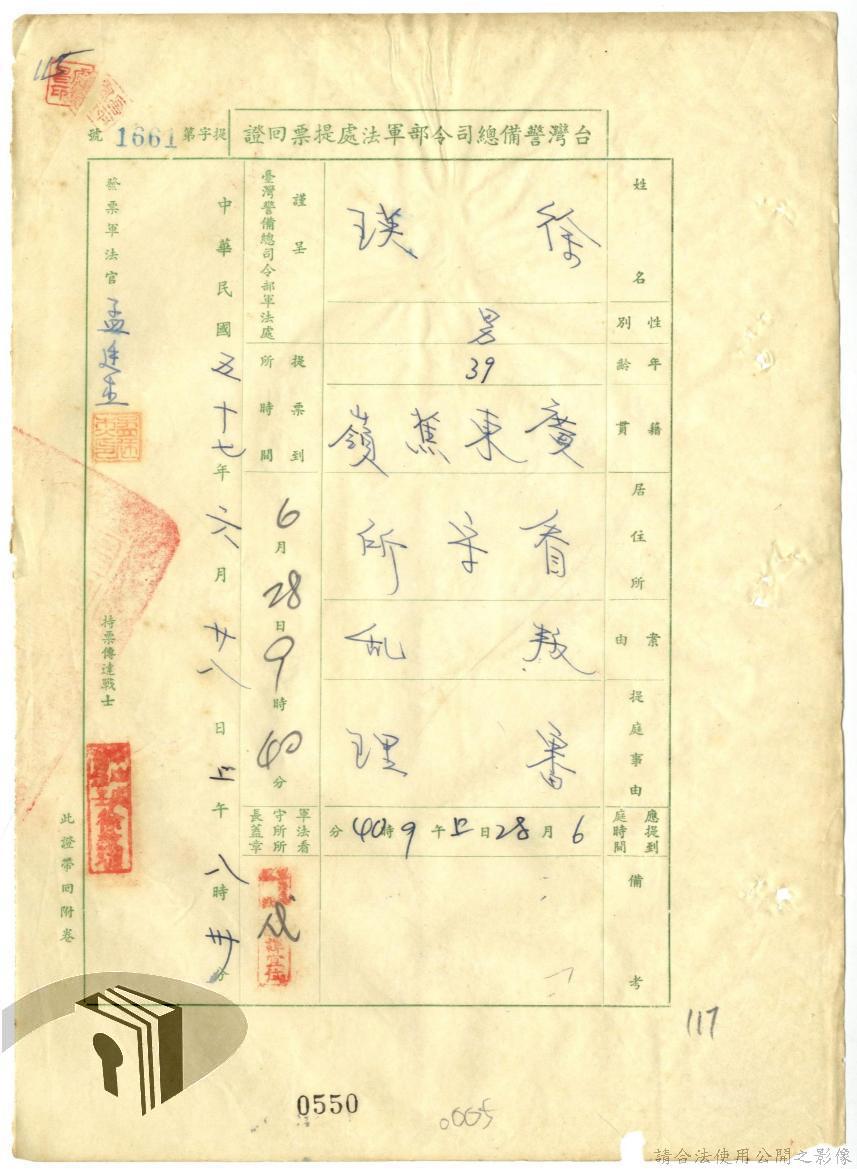 115
台灣警備總司令部軍法處提票回證
提字第1661號
姓名
徐瑛
性別
男
年齡
39
籍貫
廣東蕉嶺
居住所
看守所
案由
叛乱
提庭事由
審理
應提到庭時間
6月28日上午9時40分
備考
謹呈
臺灣警備總司令部軍法處
提票到所時間
6月28日9時40分
軍法看守所所長蓋章
代
中華民國五十七年六月廿八日上午八時卅分
發票軍法官
孟廷杰
持票傳達戰士
此證帶回附卷
117
0550
0005
請合法使用公開之影像